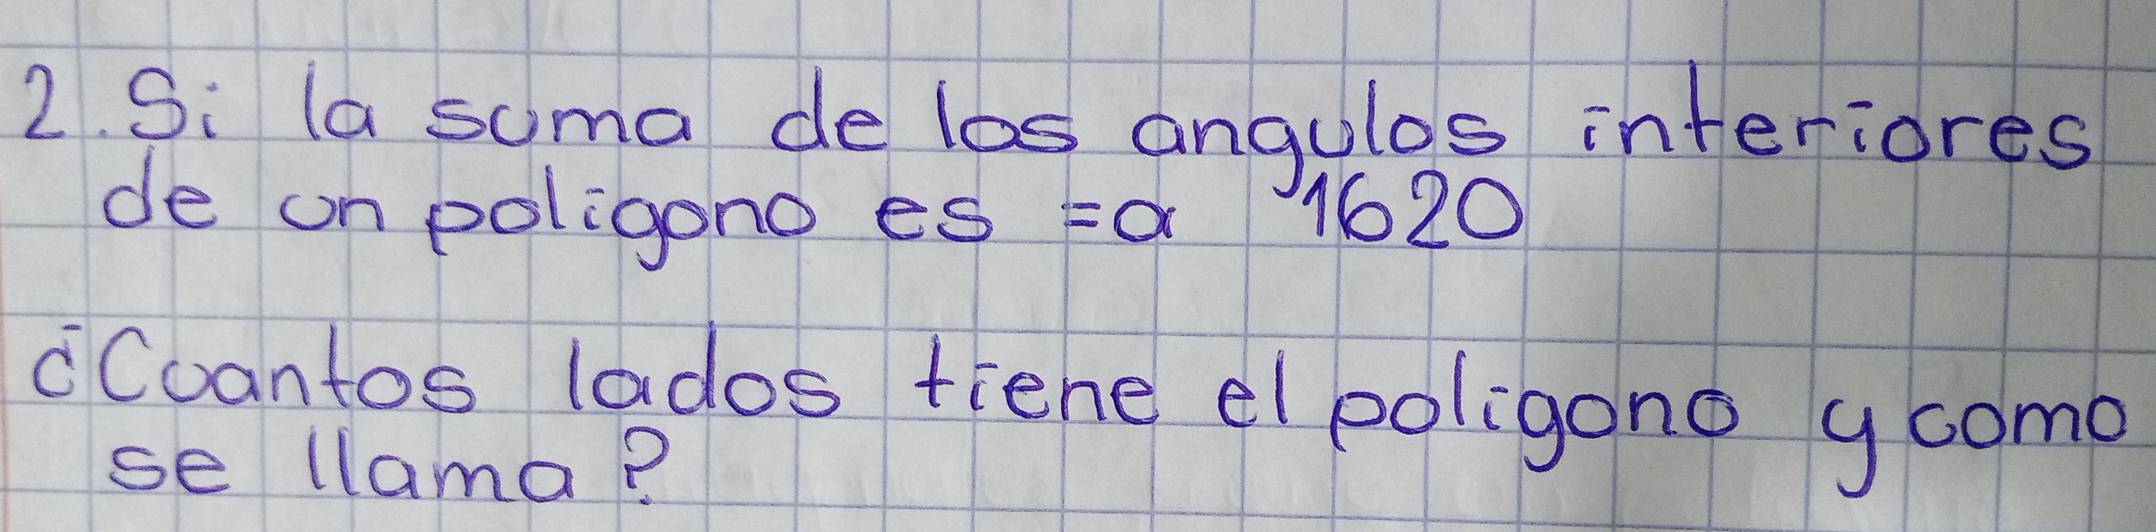 2. Si la suma de los angulos interiores
de un poligono es = a 1620
¿Cuantos lados tiene el poligono y como
se llama?